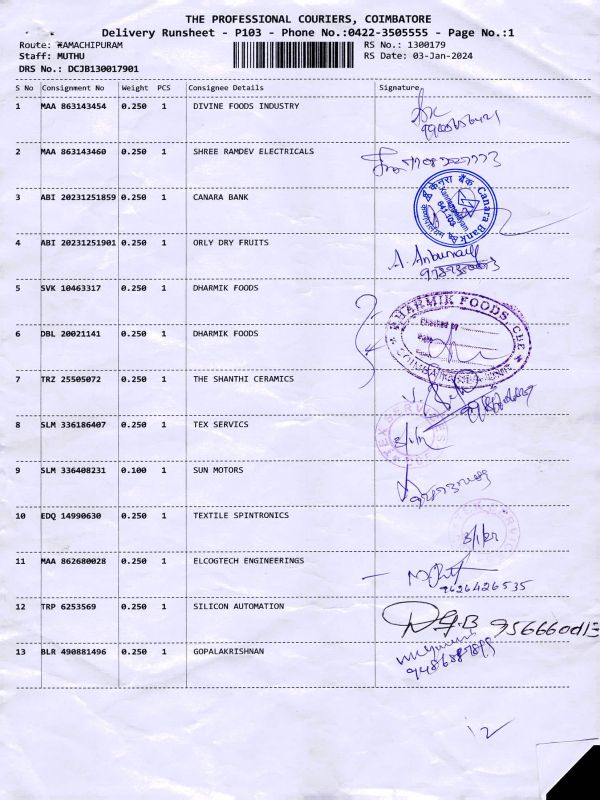 THE PROFESSIONAL COURIERS, COIMBATORE
Delivery Runsheet - P103 - Phone No.:0422-3505555 - Page No.:1
Route: RAMACHIPURAM RS No.: 1300179
Staff: MUTHU RS Date: 03-Jan-2024
DRS No.: DCJB130017901
S No Consignment No Weight PCS Consignee Details Signature
1 MAA 863143454 0.250 1 DIVINE FOODS INDUSTRY
2 MAA 863143460 0.250 1 SHREE RAMDEV ELECTRICALS
3 ABI 20231251859 0.250 1 CANARA BANK
केनरा बैंक Canara Bank
641 103
4 ABI 20231251901 0.250 1 ORLY DRY FRUITS
A. Anburaj
5 SVK 10463317 0.250 1 DHARMIK FOODS
DHARMIK FOODS CBE
Checked by
6 DBL 20021141 0.250 1 DHARMIK FOODS
7 TRZ 25505072 0.250 1 THE SHANTHI CERAMICS
8 SLM 336186407 0.250 1 TEX SERVICS
TEX SERVICES
9 SLM 336408231 0.100 1 SUN MOTORS
10 EDQ 14990630 0.250 1 TEXTILE SPINTRONICS
11 MAA 862680028 0.250 1 ELCOGTECH ENGINEERINGS
9626426535
12 TRP 6253569 0.250 1 SILICON AUTOMATION
13 BLR 490881496 0.250 1 GOPALAKRISHNAN
12